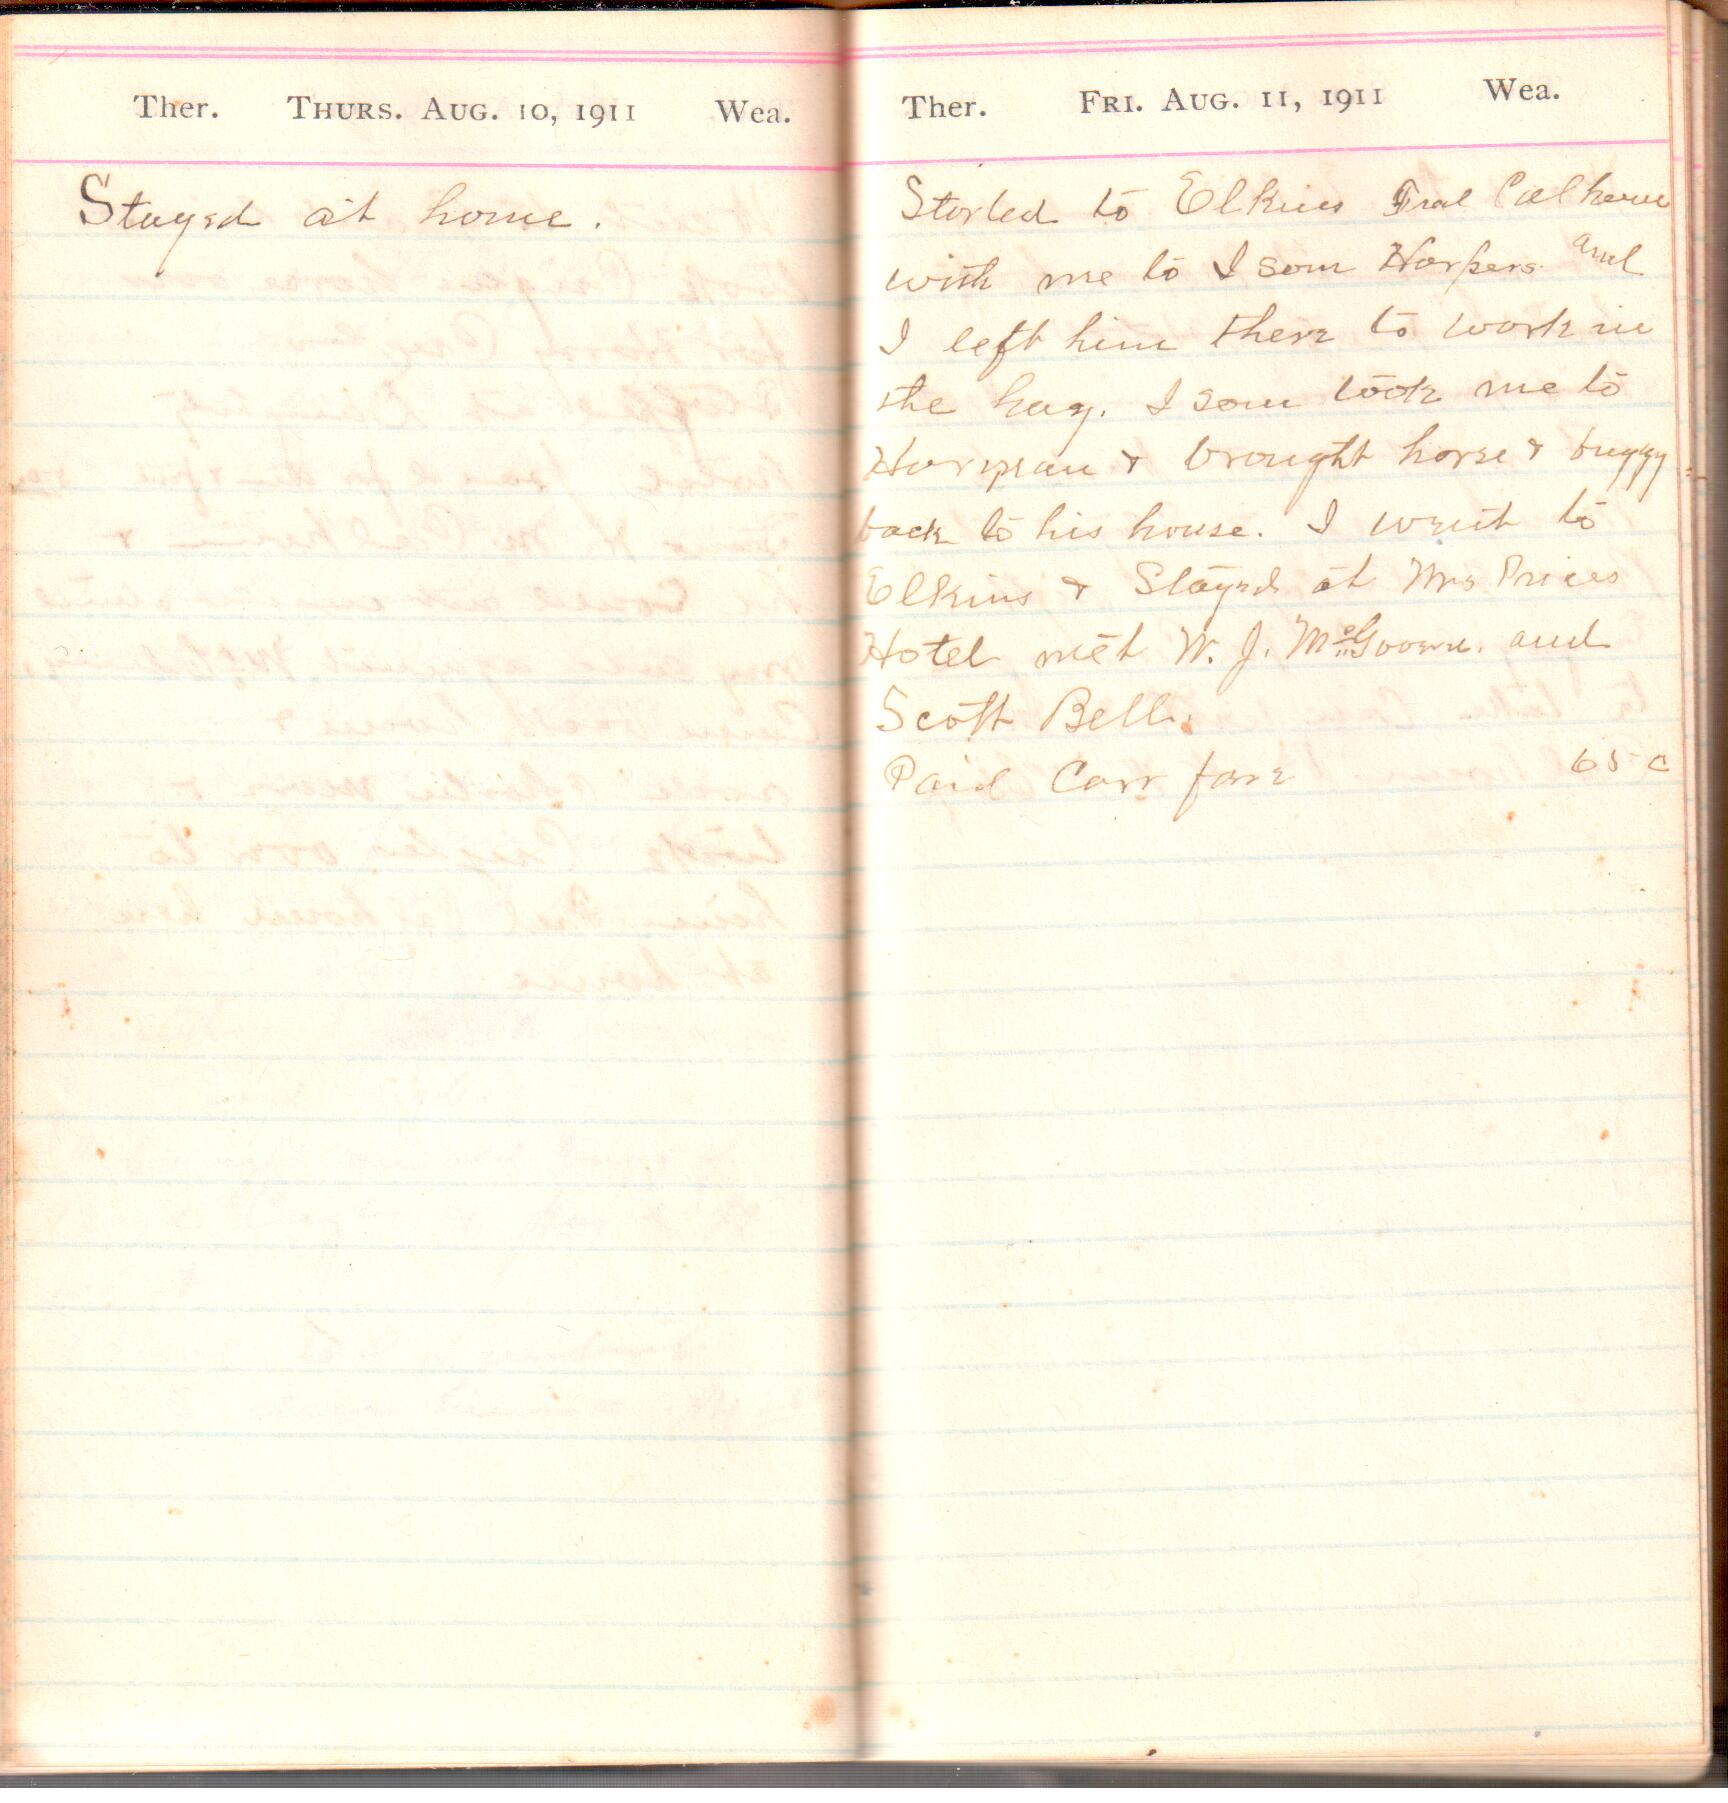 Ther. THURS. AUG. 10, 1911 Wea.
Stayed at home.
Ther. FRI. AUG. 11, 1911 Wea.
Started to Elkins Fred Calhoun
with me to Isom Harpers and
I left him there to work in
the hay. Isom took me to
Harman & brought horse & buggy
back to his house. I went to
Elkins & Stayed at Mrs Prices
Hotel met W. J. McGovern. and
Scott Bell.
Paid Carr fare 65 c